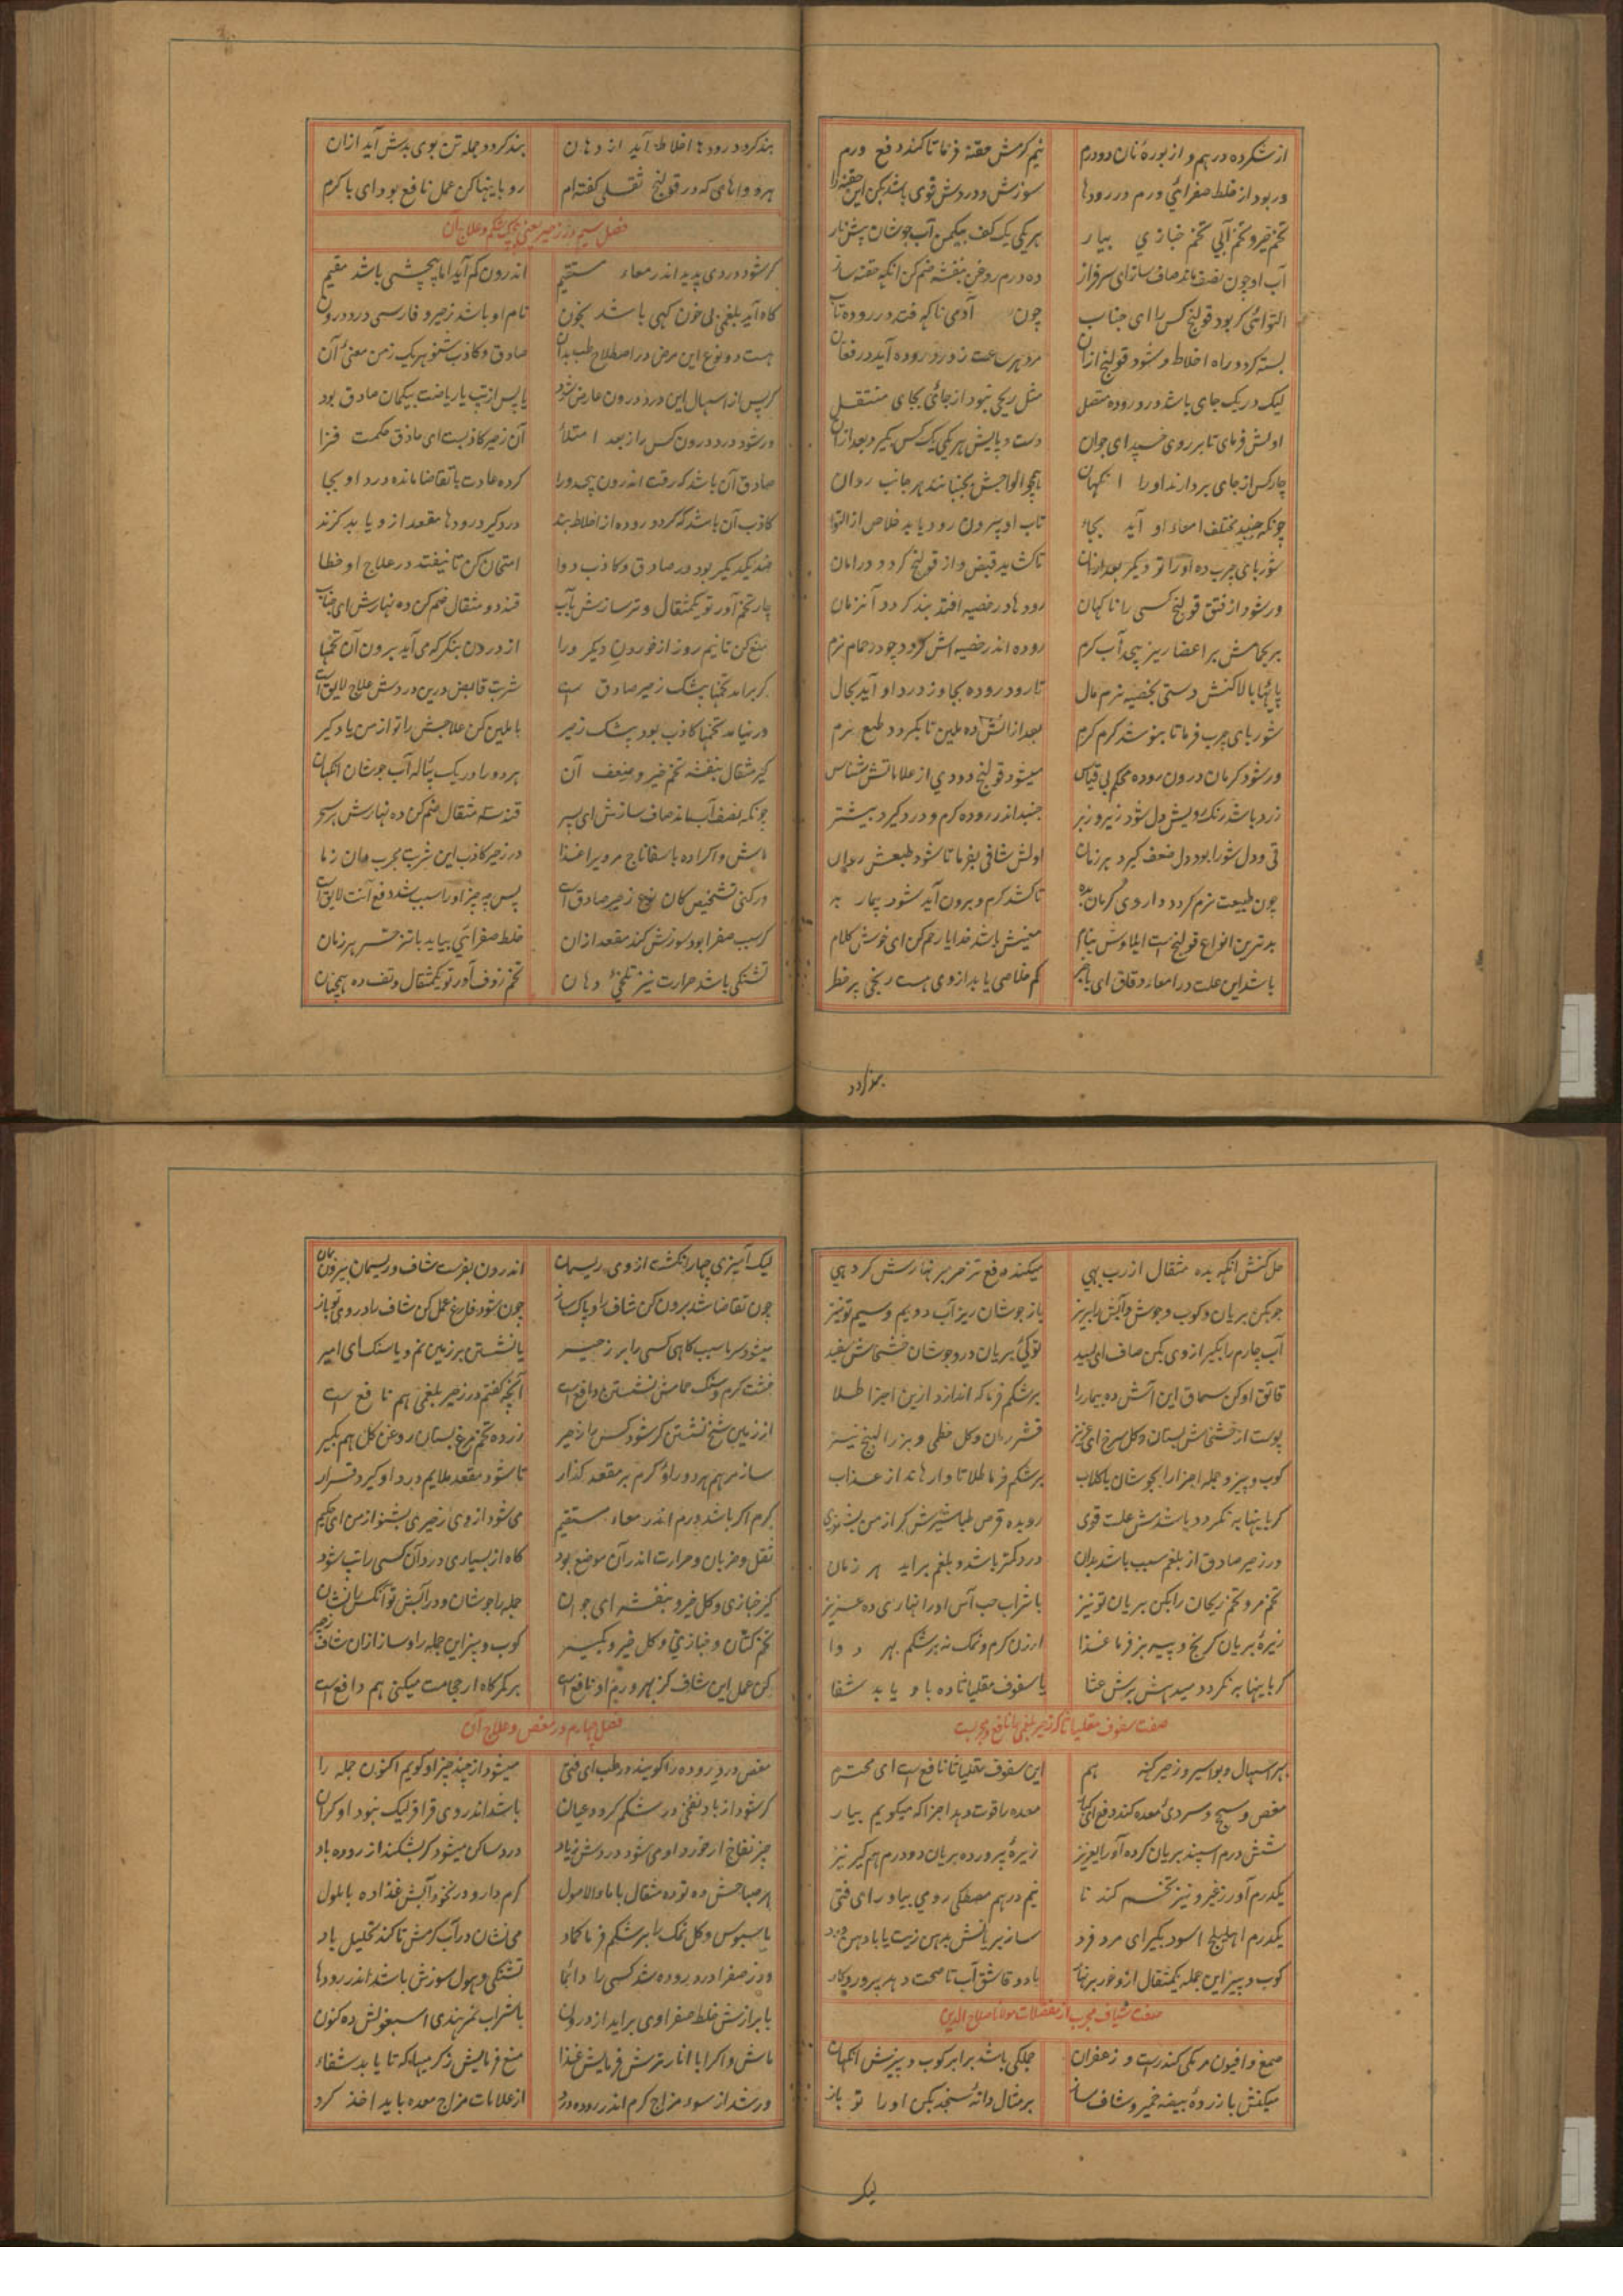 از شکر ده درهم و از بوره نان دو درم نیم گرمش حقنه فرما تا کند دفع ورم
ور بود از خلط صفرائی ورم در رودها سوزش و دردش قوی باشد بکن این حقنه را
تخم خیرو تخم آبی تخم خبازی بیار هر یکی یک کف بیکمن آب جوشان پیش نار
آب او چون نصف ماند صاف ساز ای سرفراز ده درم روغن بنفشه ضم کن انکه حقنه ساز
التوائی کر بود قولنج کس را ای جناب چون آدمی ناکه فتد در روده تاب
بسته کردد راه اخلاط و شود قولنج ازان مرد هر ساعت ز درد روده آید در فغان
لیک در یک جای باشد درد روده متصل مثل ریحی نبود از جائی بجای منتقل
اولش فرمای تا بر روی خسپد ای جوان دست و پایش هر یکی یک کس بگیرد بعد ازان
چار کس از جای بردارند او را انکهان همچو الواحش بجنبانند هر جانب روان
چونکه جنبد مختلف امعاء او آید بجا تاب او بیرون رود یابد خلاص از التوا
شوربای چرب ده او را تو دیکر بعد ازان تا کشاید قبض و از قولنج کردد در امان
ور شود از فتق قولنج کسی را ناکهان رودها در خصیه افتد بند کردد آنزمان
روده اندر خصیه اش کردد چو در حمام نرم
تا رود روده بجا وز درد او آید بحال
شوربای چرب فرما تا بنوشد کرم کرم بعد ازانش ده ملین تا بکردد طبع نرم
ور شود کرمان درون روده محکم بی قیاس میشود قولنج دودی از علاماتش شناس
زرد باشد رنک رویش دل شود زیر و زبر جنبد اندر روده کرم و درد کیرد بیشتر
قی و دل شورا بود دل ضعف کیرد هر زمان اولش شافی بفرما تا شود طبعش روان
چون طبیعت نرم کردد داروی کرمان بده تا کشد کرم و برون آید شود بیمار به
بدترین انواع قولنج است ایلاوش بنام معنیش باشد خدایا رحم کن ای خوش کلام
باشد این علت در امعاء دقاق ای باخبر کم خلاصی یابد از وی هست رنجی پر خطر
بند کردد
بند کردد رودها اخلاط آید از دهان بند کردد جمله تن بوی بدش آید ازان
هر دواهای که در قولنج ثفلی کفته ام رو باینها کن عمل نافع بود ای با کرم
فصل سیم در زحیر یعنی پیچش شکم و علاج آن
کر شود دردی پدید اندر معاء مستقیم اندرون کم آید اما پیچشی باشد مقیم
کاه آید بلغمی بی خون کهی باشد بخون نام او باشد زحیر و فارسی درد درون
هست دو نوع این مرض در اصطلاح طب بدان صادق و کاذب شنو هر یک ز من معنی آن
کر پس از اسهال این درد درون عارض شود یا پس از تب یا ریاضت بیکمان صادق بود
ور شود درد درون کس را ز بعد امتلأ آن زحیر کاذبست ای حاذق حکمت فزا
صادق آن باشد که رقت اندرون پیچد ورا کرده عادت با تقاضا مانده درد او بجا
کاذب آن باشد که کردد روده از اخلاط بند درد کیرد رودها مقعد ازو یابد کزند
ضد یکدیکر بود در صادق و کاذب دوا امتحان کن تا نیفتد در علاج او خطا
چار تخم آور تو یکمثقال و تر سازش بآب قند دو مثقال ضم کن ده نهارش ای جناب
منع کن تا نیم روز از خوردن دیکر ورا از درون بنکر که می آید برون آن تخمها
کر براید تخمها بیشک زحیر صادق است شربت قابض درین در دردش علاج لایق است
ور نیاید تخمها کاذب بود بیشک زحیر با ملین کن علاجش را تو از من یاد کیر
کیر مثقال بنفشه تخم خیرو ضعف آن هر دو را در یک پیاله آب جوشان انکهان
چونکه نصف آب ماند صاف سازش ای پسر قند سه مثقال ضم کن ده نهارش هر سحر
ماش و اکرا ده با سفاناج مرورا غذا در زحیر کاذب این شربت مجرب دان ز ما
ور کنی تشخیص کان نوع زحیر صادق است پس چه چیز او را سبب شد دفع آنت لایق است
کر سبب صفرا بود سوزش کند مقعد ازان خلط صفرائی بیاید با تزحر هر زمان
تشنکی باشد حرارت نیز تلخی دهان تخم زوف آور تو یکمثقال و تف ده همچنان
حل کنش انکه بده مثقال از رب بهی میکند دفع تزحر کر نهارش کر دهی
جو بکن بریان و کوب و جوش و آبش را بریز باز جوشان ریز آب دویم و سیم تو نیز
آب چارم را بکیر از وی بکن صاف ای سپید
قاتق او کن سماق این آش ده بیمار را بر شکم فرما که اندازد ازین اجزا طلا
پوست از خشخاش بستان و کل سرخ ای عزیز قشر رمان و کل خطمی و بزر البنج نیز
کوب و بیز و جمله اجزا را بجوشان با کلاب بر شکم فرما طلا تا وارهاند از عذاب
کر باینها به نکردد باشدش علت قوی رو بده قرص طباشیرش کر از من بشنوی
در زحیر صادق از بلغم سبب باشد بدان درد کمتر باشد و بلغم براید هر زمان
تخم مرو و تخم ریحان را بکن بریان تو نیز با شراب حب آس او را نهاری ده عزیز
زیره بریان کرنج و پیه بز فرما غذا ارزن کرم و نمک نه بر شکم بهر دوا
کر باینها به نکردد میدهش برش عشا یا سفوف مقلیاثا ده باو یابد شفا
صفت سفوف مقلیاثا که زحیر بلغمی را نافع و مجربست
بهر اسهال و بواسیر و زحیر کهنه هم این سفوف مقلیاثا نافع است ای محترم
مغص و سحج و سردی معده کند دفع ای کبار معده را قوت دهد اجزا که میکویم بیار
شش درم اسپند بریان کرده آور ایعزیز زیره پرورده بریان دو درم هم کیر نیز
یکدرم آور زخیرو نیز تخم کندنا نیم درهم مصطکی رومی بیاور ای فتی
یکدرم اهلیلج اسود بکیر ای مرد فرد
کوب و بیز این جمله یکمثقال ازو خور هر نهار با دو قاشق آب تا صحت دهد پروردکار
صفت شیاف مجرب از معضلات مولانا صلاح الدین
صمغ و افیون مر مکی کندرست و زعفران جملکی باشد برابر کوب و بیزش انکهان
میکنش با زرده بیضه خمیر و شاف ساز بر مثال دانه سنجد بکن او را تو باز
لیک
لیک آمیزی چهار انکشت از وی ریسمان اندرون بفرست شاف و ریسمان بیرون بمان
چون تقاضا شد برون کن شاف را و پاک ساز چون شود فارغ عمل کن شاف را در وی تو باز
میشود سرما سبب کاهی کسی را بر زحیر یا نشستن بر زمین نم و یا سنک ای امیر
خشت کرم و سنک حمامش نشستن دافع است آنچه کفتم در زحیر بلغمی هم نافع است
از زمین شخ نشستن کر شود کس را زحیر زرده تخم مرغ بستان روغن کل هم بکیر
ساز مرهم هر دو را و کرم بر مقعد کذار تا شود مقعد ملایم درد او کیرد قرار
کرم اکر باشد ورم اندر معاء مستقیم می شود از وی زحیری بشنو از من ای حکیم
ثقل و ضربان و حرارت اندر آن موضع بود کاه از بسیاری درد آن کسی را تب شود
کیر خبازی و کل خیرو بنفشه ای جوان جمله را جوشان و در آبش تو آنکس را نشان
تخم کتان و خبازی و کل خیرو بکیر کوب و بیز این جمله را و ساز ازان شاف زحیر
کن عمل این شاف کز بهر ورم او نافع است بر کمرکاه ار حجامت میکنی هم دافع است
فصل چهارم در مغص و علاج آن
مغص درد روده را کویند در طب ای فتی میشود از چند چیز او کویم اکنون جمله را
کر شود از باد نفخی در شکم کردد عیان باشد اندر وی قراقر لیک نبود او کران
چیز نفاخ ار خورد او می شود دردش زیاد درد ساکن میشود کر بشکند از روده باد
هر صباحش ده تو ده مثقال با ماء الاصول کرم دارو در نخود آبش غذا ده با ملول
با سبوس و کل نمک را بر شکم فرما کماد می نشان در آب کرمش تا کند تحلیل باد
ور ز صفرا درد روده شد کسی را دائما تشنکی و هول سوزش باشد اندر رودها
با برازش خلط صفراوی براید از درون با شراب تمر هندی اسبغولش ده کنون
ماش و اکرا با انار ترش فرمایش غذا منع فرمایش ز کرمیها که تا یابد شفاء
ور شد از سوء مزاج کرم اندر روده درد از علامات مزاج معده باید اخذ کرد